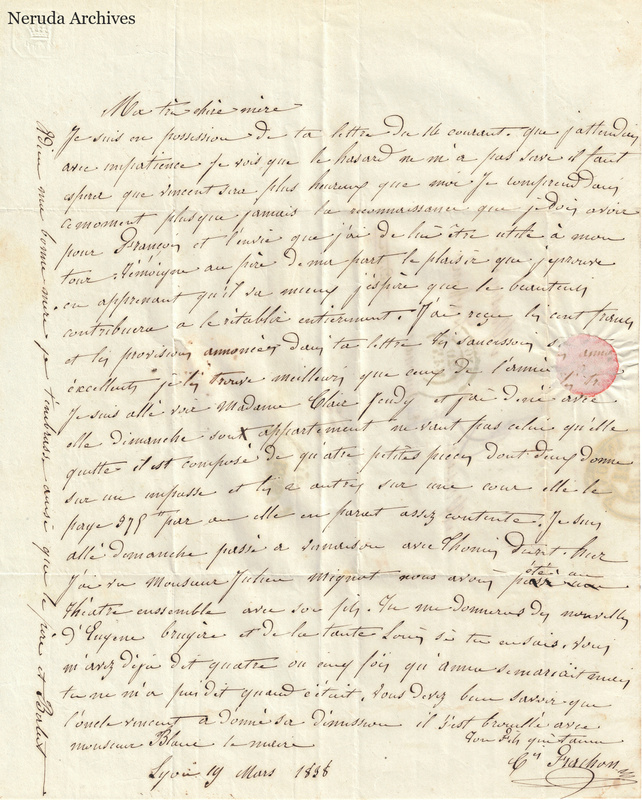 Neruda Archives
Ma très chère mère
Je suis en possession de ta lettre du 16 courant. que j'attendais
avec impatience je vois que le hasard ne m'a pas servi il faut
espérer que vincent sera plus hureux que moi Je comprend dans
ce moment plus que jamais la reconnaissance que je dois avoir
pour François et l'envie que j'ai de lui être utile à mon
tour. Témoigne au père de ma part le plaisir que j'éprouve
en apprenant qu'il va mieux j'espère que le beau tems
contribuera a le rétablir entièrement. J'ai reçu les cent francs
et les provisions annoncées dans ta lettre les saucissons
excellents je les trouve meilleurs que ceux de l'année
Je suis allé voir Madame Clair et j'ai diné avec
elle dimanche son appartement ne vaut pas celui qu'elle
quitte il est composé de quatre petites pièces dont deux donne
sur un impasse et les 2 autres sur une cour elle le
paye 375 par an elle en parait assez contente. Je suis
allé dimanche passé a avec hier
J'ai vu Monsieur Julien Mignot nous avons été au
théatre enssemble avec son fils. Tu me donneras des nouvelles
d'Eugène bruyère et de la tante Louis si tu en sais. Vous
m'avez déjà dit quatre ou cinq fois qu'anna se mariait mais
tu ne m'a pas dit quand c'était. Vous devez bien savoir que
l'oncle vincent a donné sa démission il s'est brouillé avec
monsieur Blanc le maire
Ton fils qui t'aime
Frachon
Lyon 19 Mars 1858
Adieu ma bonne mère je t'embrasse ainsi que le père et